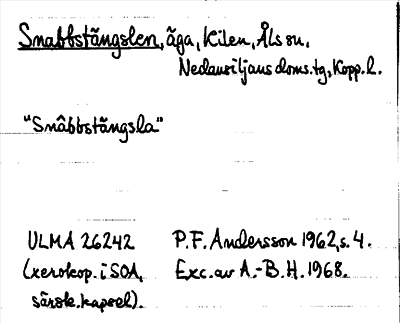 Snabbstängslen, äga, Kilen, Åls sn,
Nedansiljans doms.tg, Kopp. l.
"Snâbbstängsla"
ULMA 26242 P.F. Andersson 1962, s. 4.
(xerokop. i SOA, Exc. av A.-B. H. 1968.
särsk. kapsel).